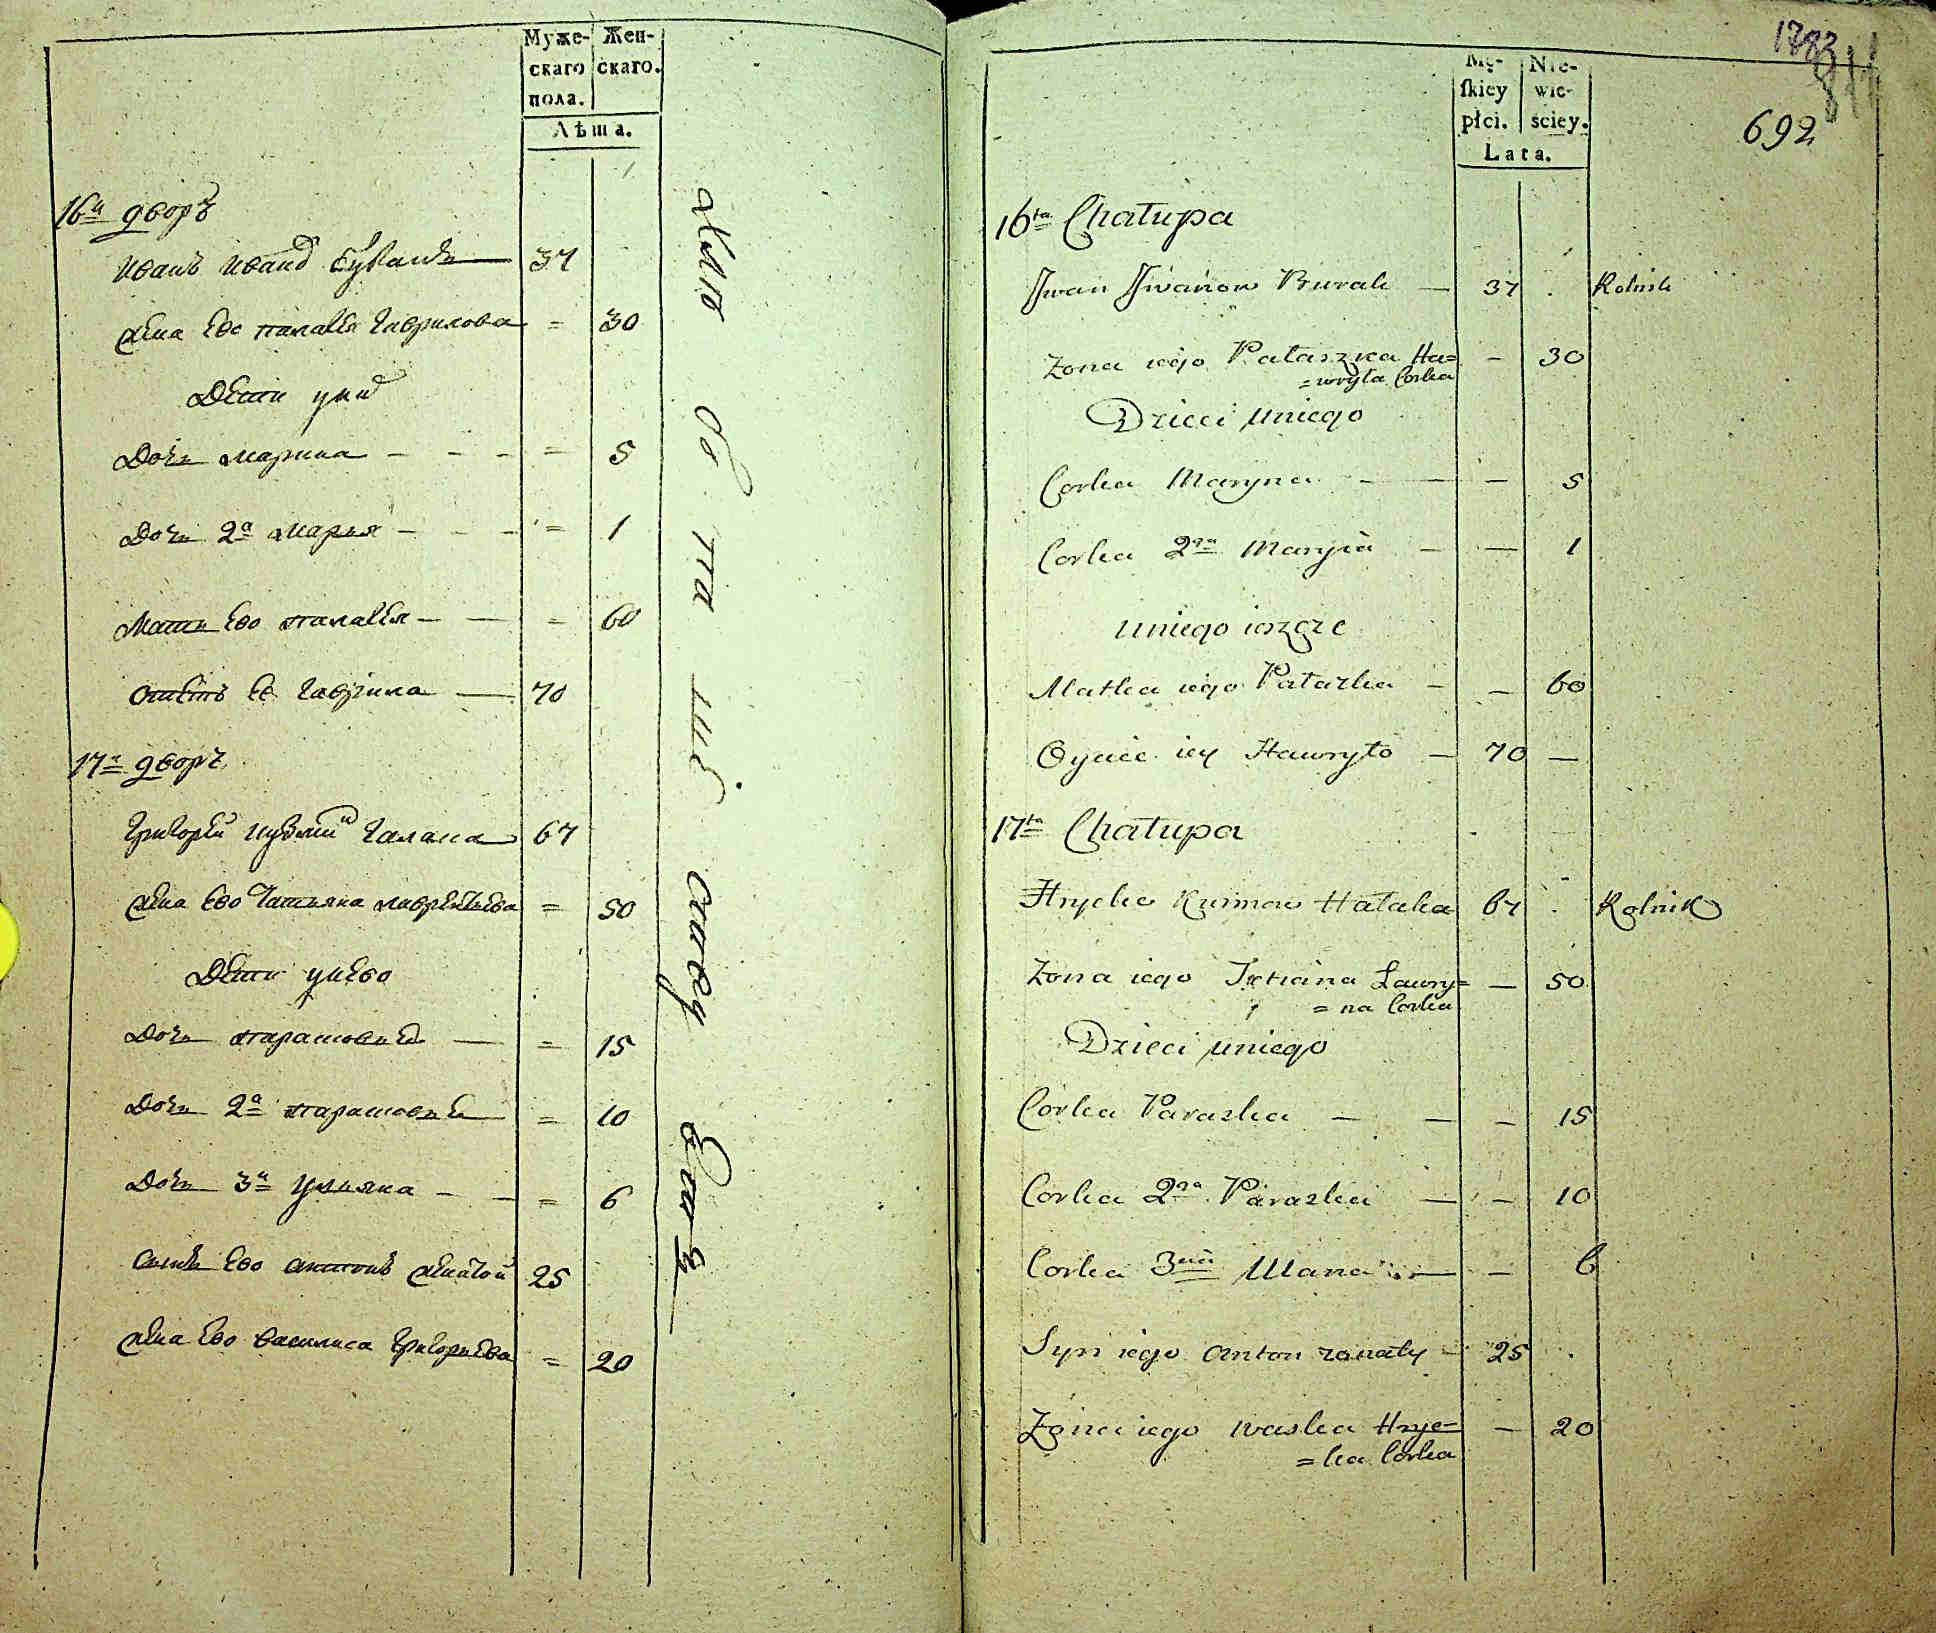 Муже-
скаго
пола.
Жен-
скаго.
Лѣта.
16й дворъ
Иванъ Ивано 37
жена ево палагея гаврилова = 30
Дети у них
Дочь марина - - - = 5
Дочь 2я марья - - - = 1
Мать ево палагея - - = 60
Отецъ ее гаврила — 70
17й дворъ
григорей галака 67
жена ево татьяна лаврентьева = 50
Дети у нево
Дочь парасковия — = 15
Дочь 2я парасковия = 10
Дочь 3я ульяна - - = 6
сынъ ево антонъ женатой 25
жена ево василиса григорьева = 20
Mę-
skiey
płci.
Nie-
wie-
sciey.
Lata.
1783
811
692
16ta Chałupa
Iwan Iwanow Burak — 37 . Rolnik
Zona iego Pałaszka Ha= — 30
=wryła Corka
Dzieci uniego
Corka Maryna — — — 5
Corka 2ga Maryia — — 1
uniego ieszcze
Matka iego Pałazka — — 60
Oyciec iey Hawryło — 70 —
17ta Chałupa
Hryćko Kuzmow Hałaka 67 . Rolnik
Zona iego Tatiana Lawry= — 50
=na Corka
Dzieci uniego
Corka Paraska — — — 15
Corka 2ga Paraska — — 10
Corka 3cia Ulana — — 6
Syn iego Anton zonaty — 25 .
Zona iego Waska Hryć= — 20
=ka Corka